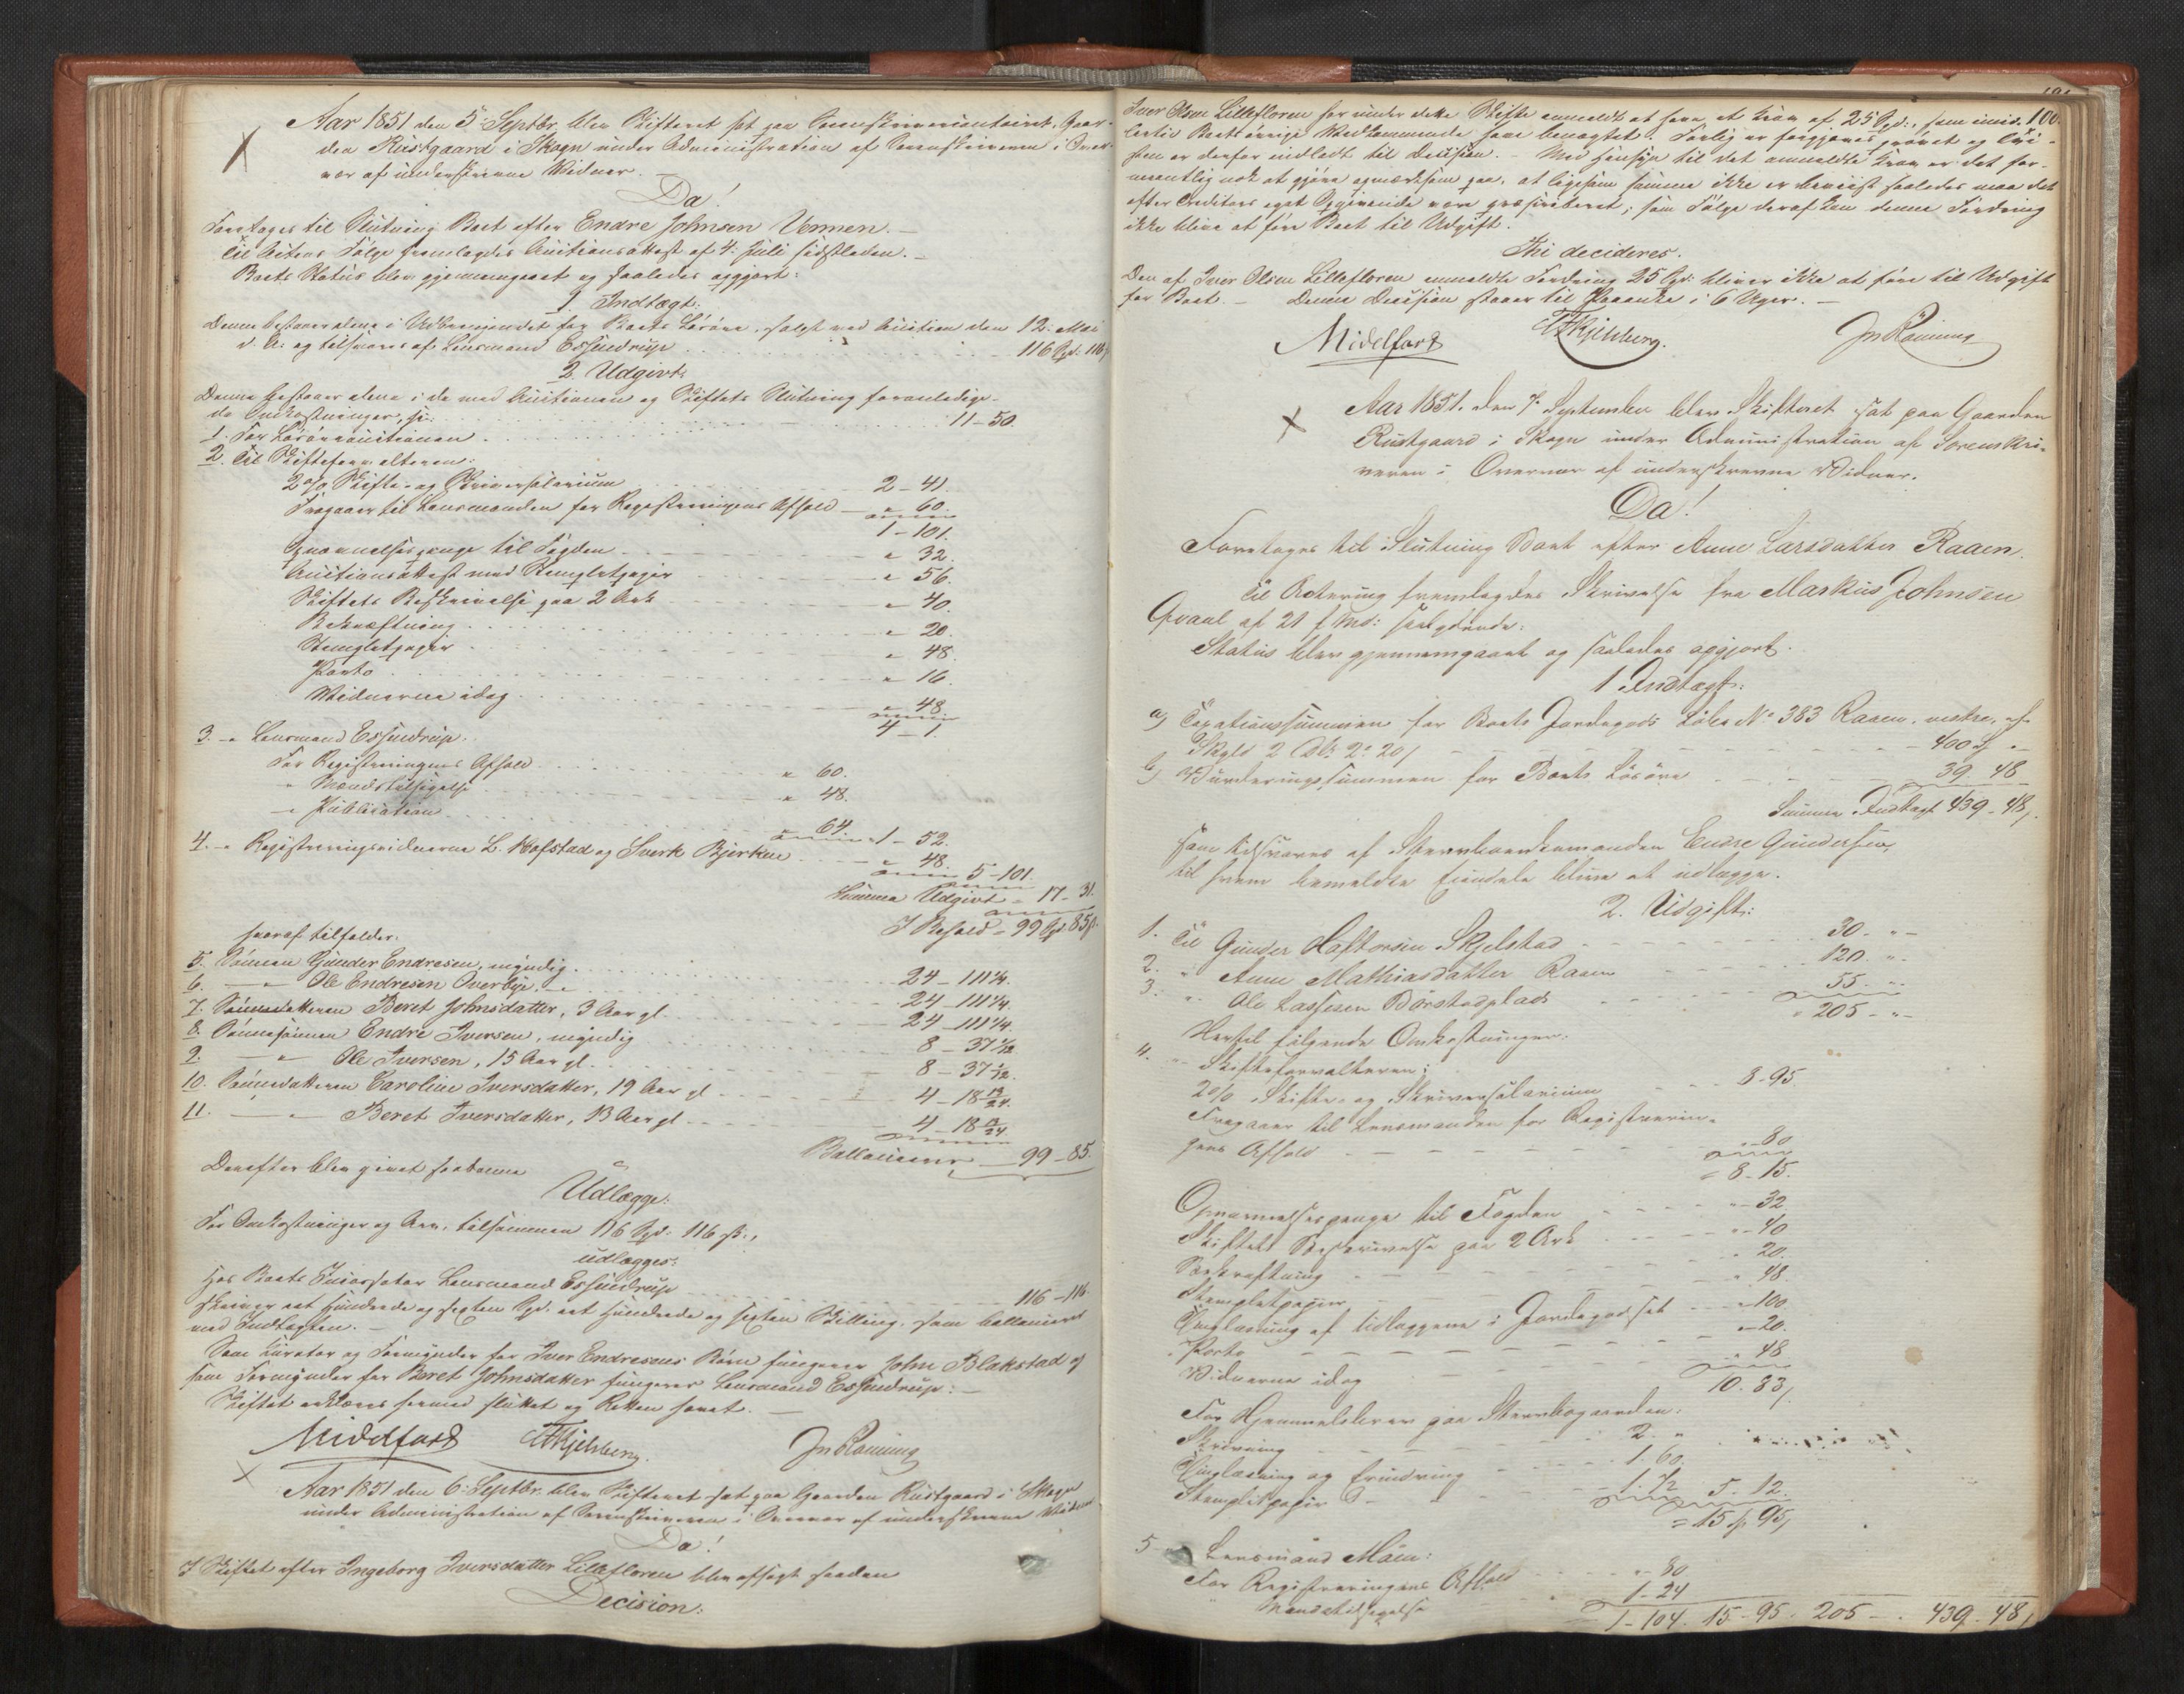 Aar 1851 den 5: Septbr. blev Skifteret sat paa Sorenskrivercontoiret, Gaar-
den Rustgaard i Skogn under Administration af Sorenskriveren i Over-
vær af underskrevne Vidner.
Da!
Foretoges til Slutning Boet efter Endre Johnsen Vennen.
Til Actens Følge fremlagdes Auctionsattest af 4: Juli sidstleden.
Boets Status blev gjennemgaaet og saaledes opgjort:
1. Indtægt:
Denne bestaaer alene i Udbringendet for Boets Løsøre, solgt ved Auction den 12: Mai
d. A: og tilsvares af Lensmand Essendrup 116 Spd: 116 s
2. Udgivt:
Denne bestaaer alene i de med Auctionen og Skiftets Slutning foranledige-
de Omkostninger, sc:
1. For Løsøreauctionen 11 - 50.
2. Til Skifteforvalteren:
2 % Skifte- og Skriversalarium 2 - 41.
Fragaaer til Lensmanden for Registreringens Afhold " 60.
1 - 101.
Opnævnelsespenge til Fogden " 32.
Auctionsattest med Stempletpapir " 56.
Skiftets Beskrivelse paa 2 Ark " 40.
Bekræftning " 20.
Stempletpapir " 48.
Porto " 16.
Vidnerne idag " 48.
4 - 1.
3. " Lensmand Essendrup.
For Registreringens Afhold " 60.
" Mændstilsigelse " 48.
" Publication " 64.
1 - 52.
4. " Registreringsvidnerne L. Hofstad og Sverk Bjerkne " 48.
5 - 101.
Summa Udgivt - 17 - 31.
I Behold = 99 Spd: 85 s.
hvoraf tilfalder:
5. Sønnen Gunder Endresen, myndig 24 - 111 1/4.
6. " Ole Endresen Overbye, " 24 - 111 1/4.
7. Sønnedatteren Beret Johnsdatter, 3 Aar gl 24 - 111 1/4.
8. Sønnesønnen Endre Iversen, myndig 8 - 37 1/12.
9. " Ole Iversen, 15 Aar gl. 8 - 37 1/12.
10. Sønnedatteren Caroline Iversdatter, 19 Aar gl 4 - 18 13/24.
11. " Beret Iversdatter, 13 Aar gl 4 - 18 13/24.
Ballancerer 99 - 85.
Derefter blev givet saadanne
Udlægge:
For Omkostninger og Arv, tilsammen 116 Spd: 116 s.,
udlægges:
Hos Boets Incassator Lensmand Essendrup 116 - 116
skriver eet Hundrede og sexten Spd. eet Hundrede og sexten Skilling, som ballancerer
med Indtægten.
Som Curator og Formynder for Iver Endresens Børn fungerer John Blakstad og
som Formynder for Beret Johnsdatter fungerer Lensmand Essendrup.
Skiftet erklæres hermed sluttet og Retten hævet.
Middelfart
Aar 1851 den 6: Septbr. blev Skifteret sat paa Gaarden Rustgaard i Skogn
under Administration af Sorenskriveren i Overvær af underskrevne Vidner
Da!
I Skiftet efter Ingeborg Iversdatter Lillefloren blev afsagt saadan
Decision:
100.
Iver Olsen Lillefloren har under dette Skifte anmeldt at have et Krav af 25 Spd:, som imid-
lertid Boets øvrige Vedkommende have benægtet. Forlig er forgjæves prøvet og Tvi-
sten er derfor indladt til Decision. - Med Hensyn til det anmeldte Krav er det for-
mentlig nok at gjøre opmærksom paa, at ligesom samme ikke er beviist saaledes maa det
efter Creditors eget Opgivende være præscriberet; som Følge deraf kan denne Fordring
ikke blive at føre Boet til Udgift.
Thi decideres.
Den af Iver Olsen Lillefloren anmeldte Fordring 25 Spd: bliver ikke at føre til Udgift
for Boet. - Denne Decision staaer til Paaanke i 6 Uger.
Middelfart
Aar 1851. den 7 September blev Skifteret sat paa Gaarden
Rustgaard i Skogn under Administration af Sorenskri-
veren i Overvær af underskrevne Vidner.
Da!
Foretoges til Slutning Boet efter Anne Larsdatter Raaen.
Til Actering fremlagdes Skrivelse fra Markus Johnsen
af 21 f. Md: saalydende:
Status blev gjennemgaaet og saaledes opgjort.
1 Indtægt:
a) Taxationssummen for Boets Jordegods Løbe No 383 Raaen, vestre, af
Skyld 2 Dlr. 2. 20 s 400 "
b) Vurderingssummen for Boets Løsøre 39. 48
Summa Indtægt 439 - 48,
som tilsvares af Stervboenkemanden Endre Gundersen,
til hvem bemeldte Eiendele blive at udlægge.
2. Udgift:
1. Til Gunder Haftorsen Skjelstad 30. "
2. " Anne Mathiasdatter Raaen 120. "
3. " Ole Lassesen Børstadplads 55. "
205 - "
Hertil følgende Omkostninger:
4. " Skifteforvalteren:
2 % Skifte- og Skriversalarium 8 - 95.
Fragaaer til Lensmanden for Registrerin-
gens Afhold " 80
= 8 - 15.
Opnævnelsespenge til Fogden " - 32
Skiftets Beskrivelse paa 2 Ark " - 40
Bekræftning " 20.
Stempletpapir " 48.
Thinglæsning af Udlæggene i Jordegodset " 100.
Porto " - 20.
Vidnerne idag " 48
10. 83,
For Hjemmelsbrev paa Stervbogaarden:
Skrivning 2. "
Thinglæsning og Erindring 1. 60.
Stempletpapir 1. 72 5. 12.
= 15 95,
5. Lensmand :
For Registreringens Afhold " 80
" Mændstilsigelse 1 - 24
1 - 104. 15 - 95. 205 - . 439. 48,